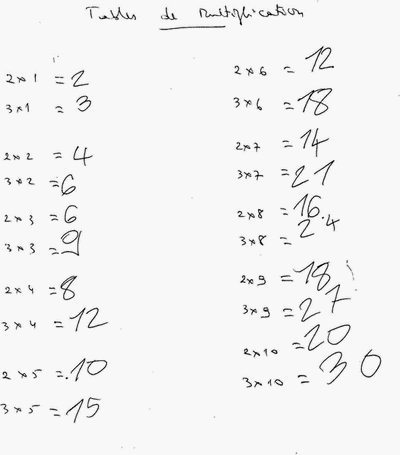 Tables de multiplication
2 x 1 = 2
3 x 1 = 3
2 x 2 = 4
3 x 2 = 6
2 x 3 = 6
3 x 3 = 9
2 x 4 = 8
3 x 4 = 12
2 x 5 = 10
3 x 5 = 15
2 x 6 = 12
3 x 6 = 18
2 x 7 = 14
3 x 7 = 21
2 x 8 = 16
3 x 8 = 24
2 x 9 = 18
3 x 9 = 27
2 x 10 = 20
3 x 10 = 30